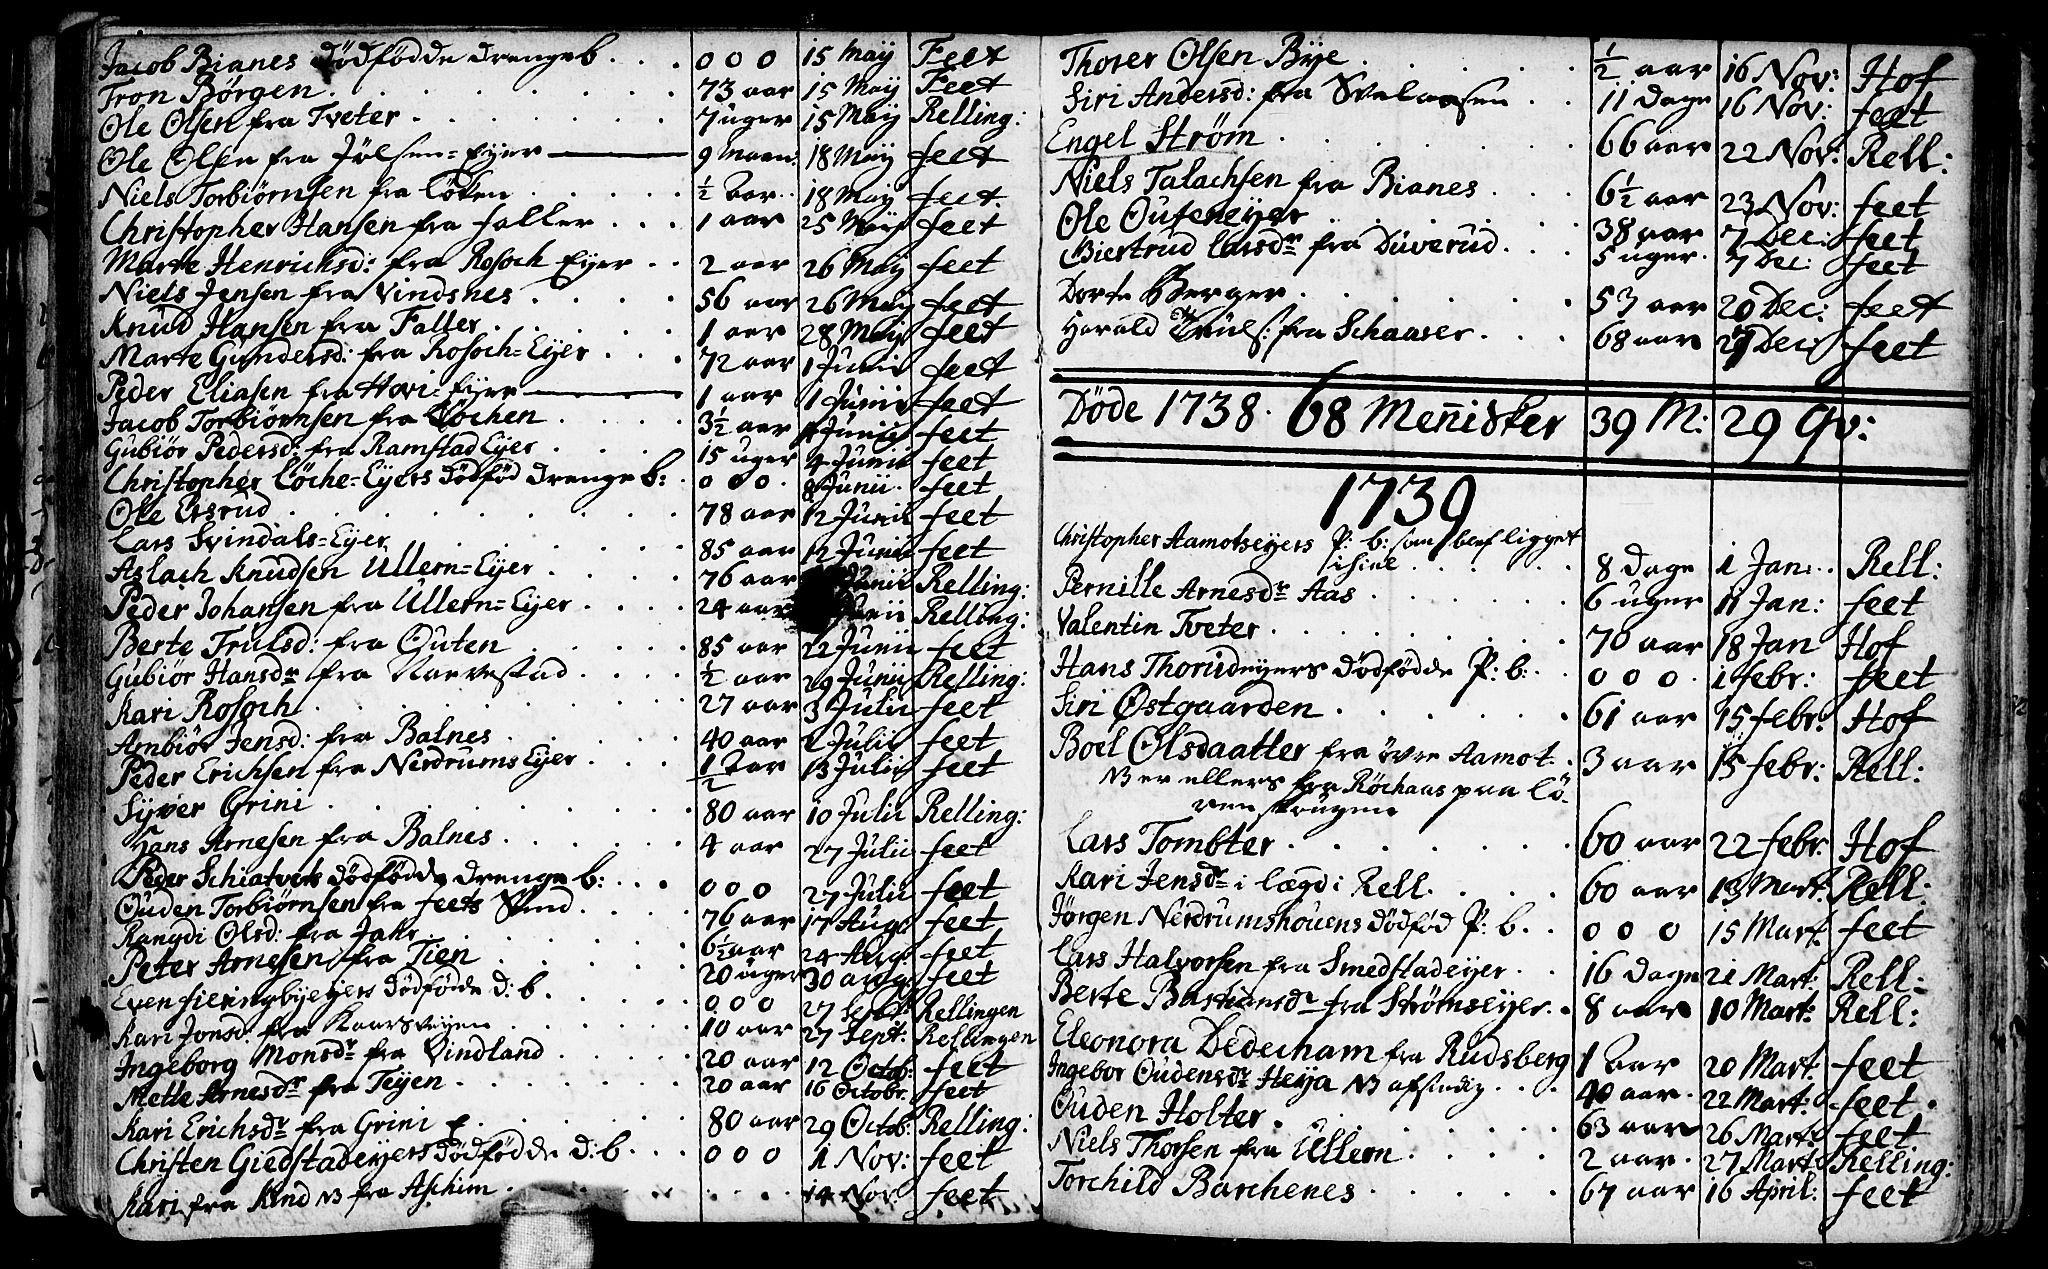 Jacob Bianes dödfödde drengeb. . . . 0 0 0 15 Maÿ Feet
Tron Börgen. . . . . . . . 73 aar 15 Maÿ Feet
Ole Olsen fra Tveter . . . . . . 7 uger 15 Maÿ Relling:
Ole Olsen fra Jölsen=Eÿer 9 Maan: 18 Maÿ feet
Niels Torbiörnsen fra Löken . . . . ½ aar. 18 Maÿ feet.
Christopher Hansen fra faller . . . 1 aar 25 Maÿ feet
Marte Henrichsd: fra Rosoch Eÿer . . 2 aar 26 Maÿ feet
Niels Jensen fra Vindsnes . . . . 56 aar 26 Maÿ feet
Knud Hansen fra Faller . . . . . 1 aar 28 Maÿ feet
Marte Gundersd: fra Rosoch=Eÿer . . . 72 aar 1 Junii feet
Peder Eliasen fra Hovi Eÿer 1 aar 1 Junii feet
Jacob Torbiörnsen fra Löchen . . . . 3½ aar Junii feet
Gubiör Pedersd: fra Ramstad Eÿer . . . . 15 uger 4 Junii feet
Christopher Löche=Eÿers dödfød drenge b: . 0 0 0 8 Junii. feet
Ole Ersrud . . . . . . . . 78 aar 12 Junii feet
Lars Svindals=Eÿer . . . . . . 85 aar 12 Junii feet
Aslach Knudsen Ullern=Eÿer . . . . 76 aar Junii Relling:
Peder Johansen fra Ullern=Eÿer . . . . 24 aar Relling:
Berte Trulsd: fra Outen . . . . . 85 aar 22 Junii feet
Gubiör Hansdr fra Narvestad . . . . ½ aar 29 Junii Relling:
Kari Rosoch . . . . . . . . 27 aar 3 Julii feet
Ambiör Jensd: fra Balnes . . . . . 40 aar 2 Julii feet
Peder Erichsen fra Nerdrums Eÿer . . . . ½ aar 13 Julii feet
Sÿver Grini . . . . . . . . 80 aar 10 Julii Relling:
Hans Arnesen fra Balnes . . . . . 4 aar 27 Julii feet
Peder Schiatvets dödfödde drenge b: . . . 0 0 0 27 Julii feet
Ouden Torbiörnsen fra feets Sund . . . . 76 aar 17 Aug: feet
Rangdi Olsd: fra Jahr . . . . . . 6½ aar 24 Aug: feet
Peter Arnesen fra Tien . . . . . 20 uger 30 aug: feet
Even fieringbÿeÿers dödfödde d: b. . . . . 0 0 0 27 Sept: Rellingen
Kari Jonsd: fra Kaarsveÿen . . . . . 10 aar 27 Sept: Rellingen
Ingeborg Monsdr fra Vindland . . . . 20 aar 12 Octob: feet
Mette Arnesdr fra Teÿen . . . . . . 20 aar 16 Octobr. feet
Kari Erichsdr fra Grini . . . . . 80 aar 29 Octob: Relling:
Christen Giedstadeÿers dödfödde d: b. . . . 0 0 0 1 Nov: feet
Kari fra NB fra Aschim . . . . . . . 14 Nov feet
Thorer Olsen Bÿe . . . . . . ½ aar 16 Nov: Hof
Siri Andersd: fra . . 11 dage 16 Nov: feet
Engel Strøm . . . . . . . 66 aar 22 Nov: Rell:
Niels Talachsen fra Bianes . . . 6½ aar 23 Nov: feet
Ole Outeneÿer . . . . . . 38 aar 7 Dec: feet
Giertrud Larsdr fra Duverud . . . 5 uger. 7 Dec: feet
Dorte Berger . . . . . . . 53 aar 20 Dec: feet
Harald Truls: fra Schaarer . . . 68 aar Dec: feet
Döde 1738. 68 Menisker 39 M: 29 Qv:
1739
Christopher Aamotseÿers P: b: som blef ligget
ihiel . . . . . 8 dage 1 Jan: . Rell:
Pernille Arnesdr Aas . . . . . . 6 uger 11 Jan: feet
Valentin Tveter . . . . . . . 70 aar 18 Jan Hof
Hans Thorudeÿers dödfödde P: b: . . 0 0 0 . 1 febr: feet
Siri Østgaarden . . . . . . 61 aar 15 febr: Hof
Boel Olsdaatter fra övre Aamot . . 3 aar 15 febr: Rell:
NB er ellers fra Röchaas paa Lö-
ren skougen
Lars Tombter . . . . . . . 60 aar 22 febr. Hof
Kari Jensdr i lægd i Rell. . . . . 60 aar 13 Mart: Rell:
Jörgen Nerdrumshouens dödfød P: b. . . 0 0 0 15 Mart: feet
Lars Halvorsen fra Smedstadeÿer . . 16 dage 21 Mart: Rell:
Berte Bastiansdr fra Strømseÿer . . 8 aar 10 Mart: Rell:
Eleonora Dedecham fra Rudsberg 1 aar 20 Mart: feet
Ingebor Oudensdr Heÿa NB afsindig . . . 40 aar. 22 Mart: feet.
Ouden Holter . . . . . . . 63 aar 26 Mart: feet
Niels Thorsen fra Ullern . . . . 2 aar. 27 Mart: Relling:
Torchild Barchenes . . . . . 67 aar 16 April: feet